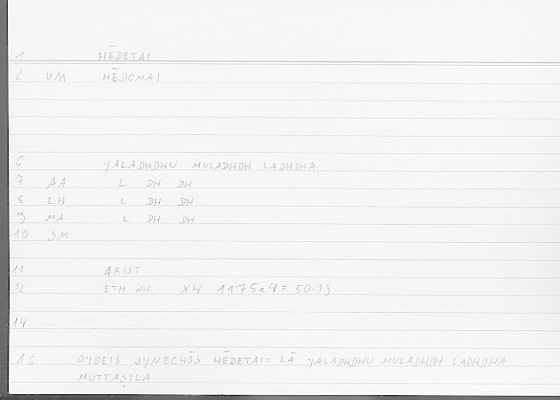 1 HĒDETAI
2 VM HĒDOMAI
6 YALADHDHU MULADHDH LADHDHA
7 AA L DH DH
8 LH L DH DH
9 MA L DH DH
10 SM
11 ARIST
12 ETH NIC X4 1175a4 = 50.13
14
16 OYDEIS SYNECHŌS HĒDETAI = LĀ YALADHDHU MULADHDH LADHDHA
MUTTAṢILA